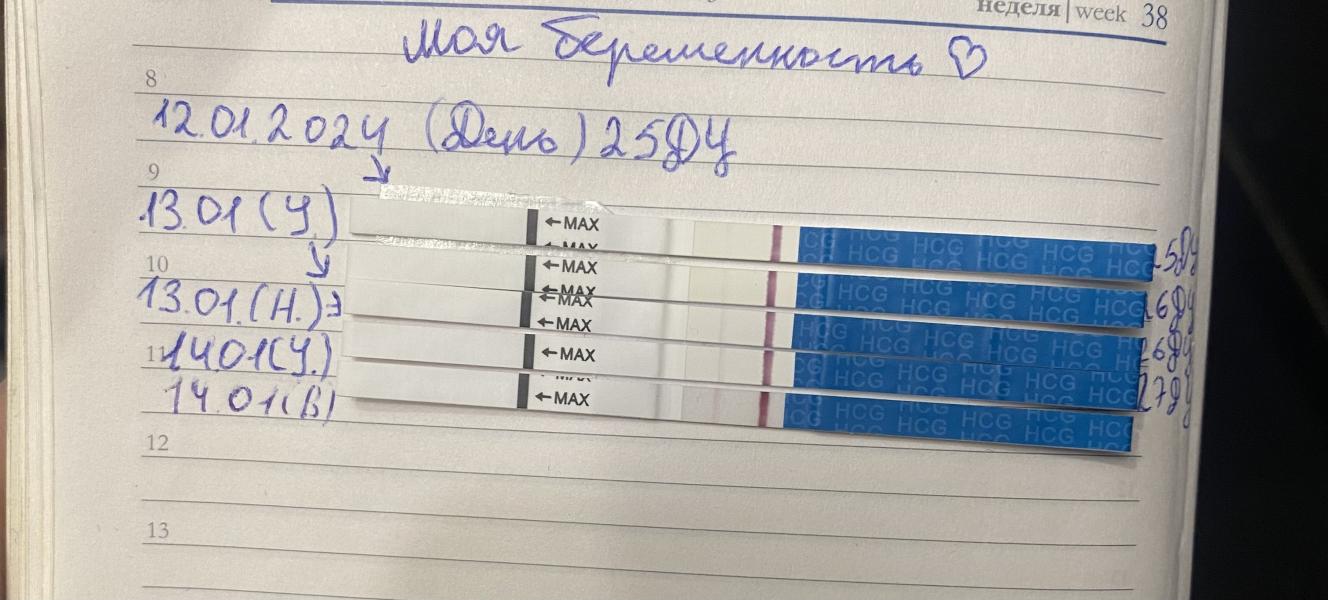 неделя | week 38
Моя беременность ♡
8
12.01.2024 (День) 25ДЦ
9
13.01 (У.)
←MAX
HCG HCG HCG HCG
25ДЦ
10
←MAX
HCG HCG HCG HCG
26ДЦ
13.01.(Н.)
←MAX
←MAX
HCG HCG HCG HCG
26ДЦ
11
14.01(У.)
←MAX
HCG HCG HCG HCG
27ДЦ
14.01(В)
←MAX
HCG HCG HCG HCG
12
13